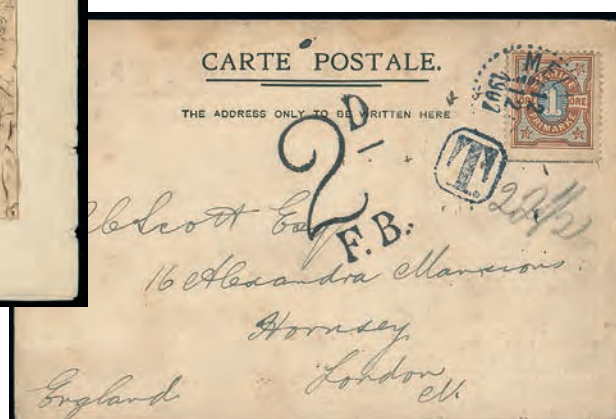 CARTE POSTALE.
THE ADDRESS ONLY TO BE WRITTEN HERE
1 ORE
FRIMARKE
1902
T.
2D/
F.B.
22½
Scott Esq
16 Alexandra Mansions.
Hornsey
London
N.
England